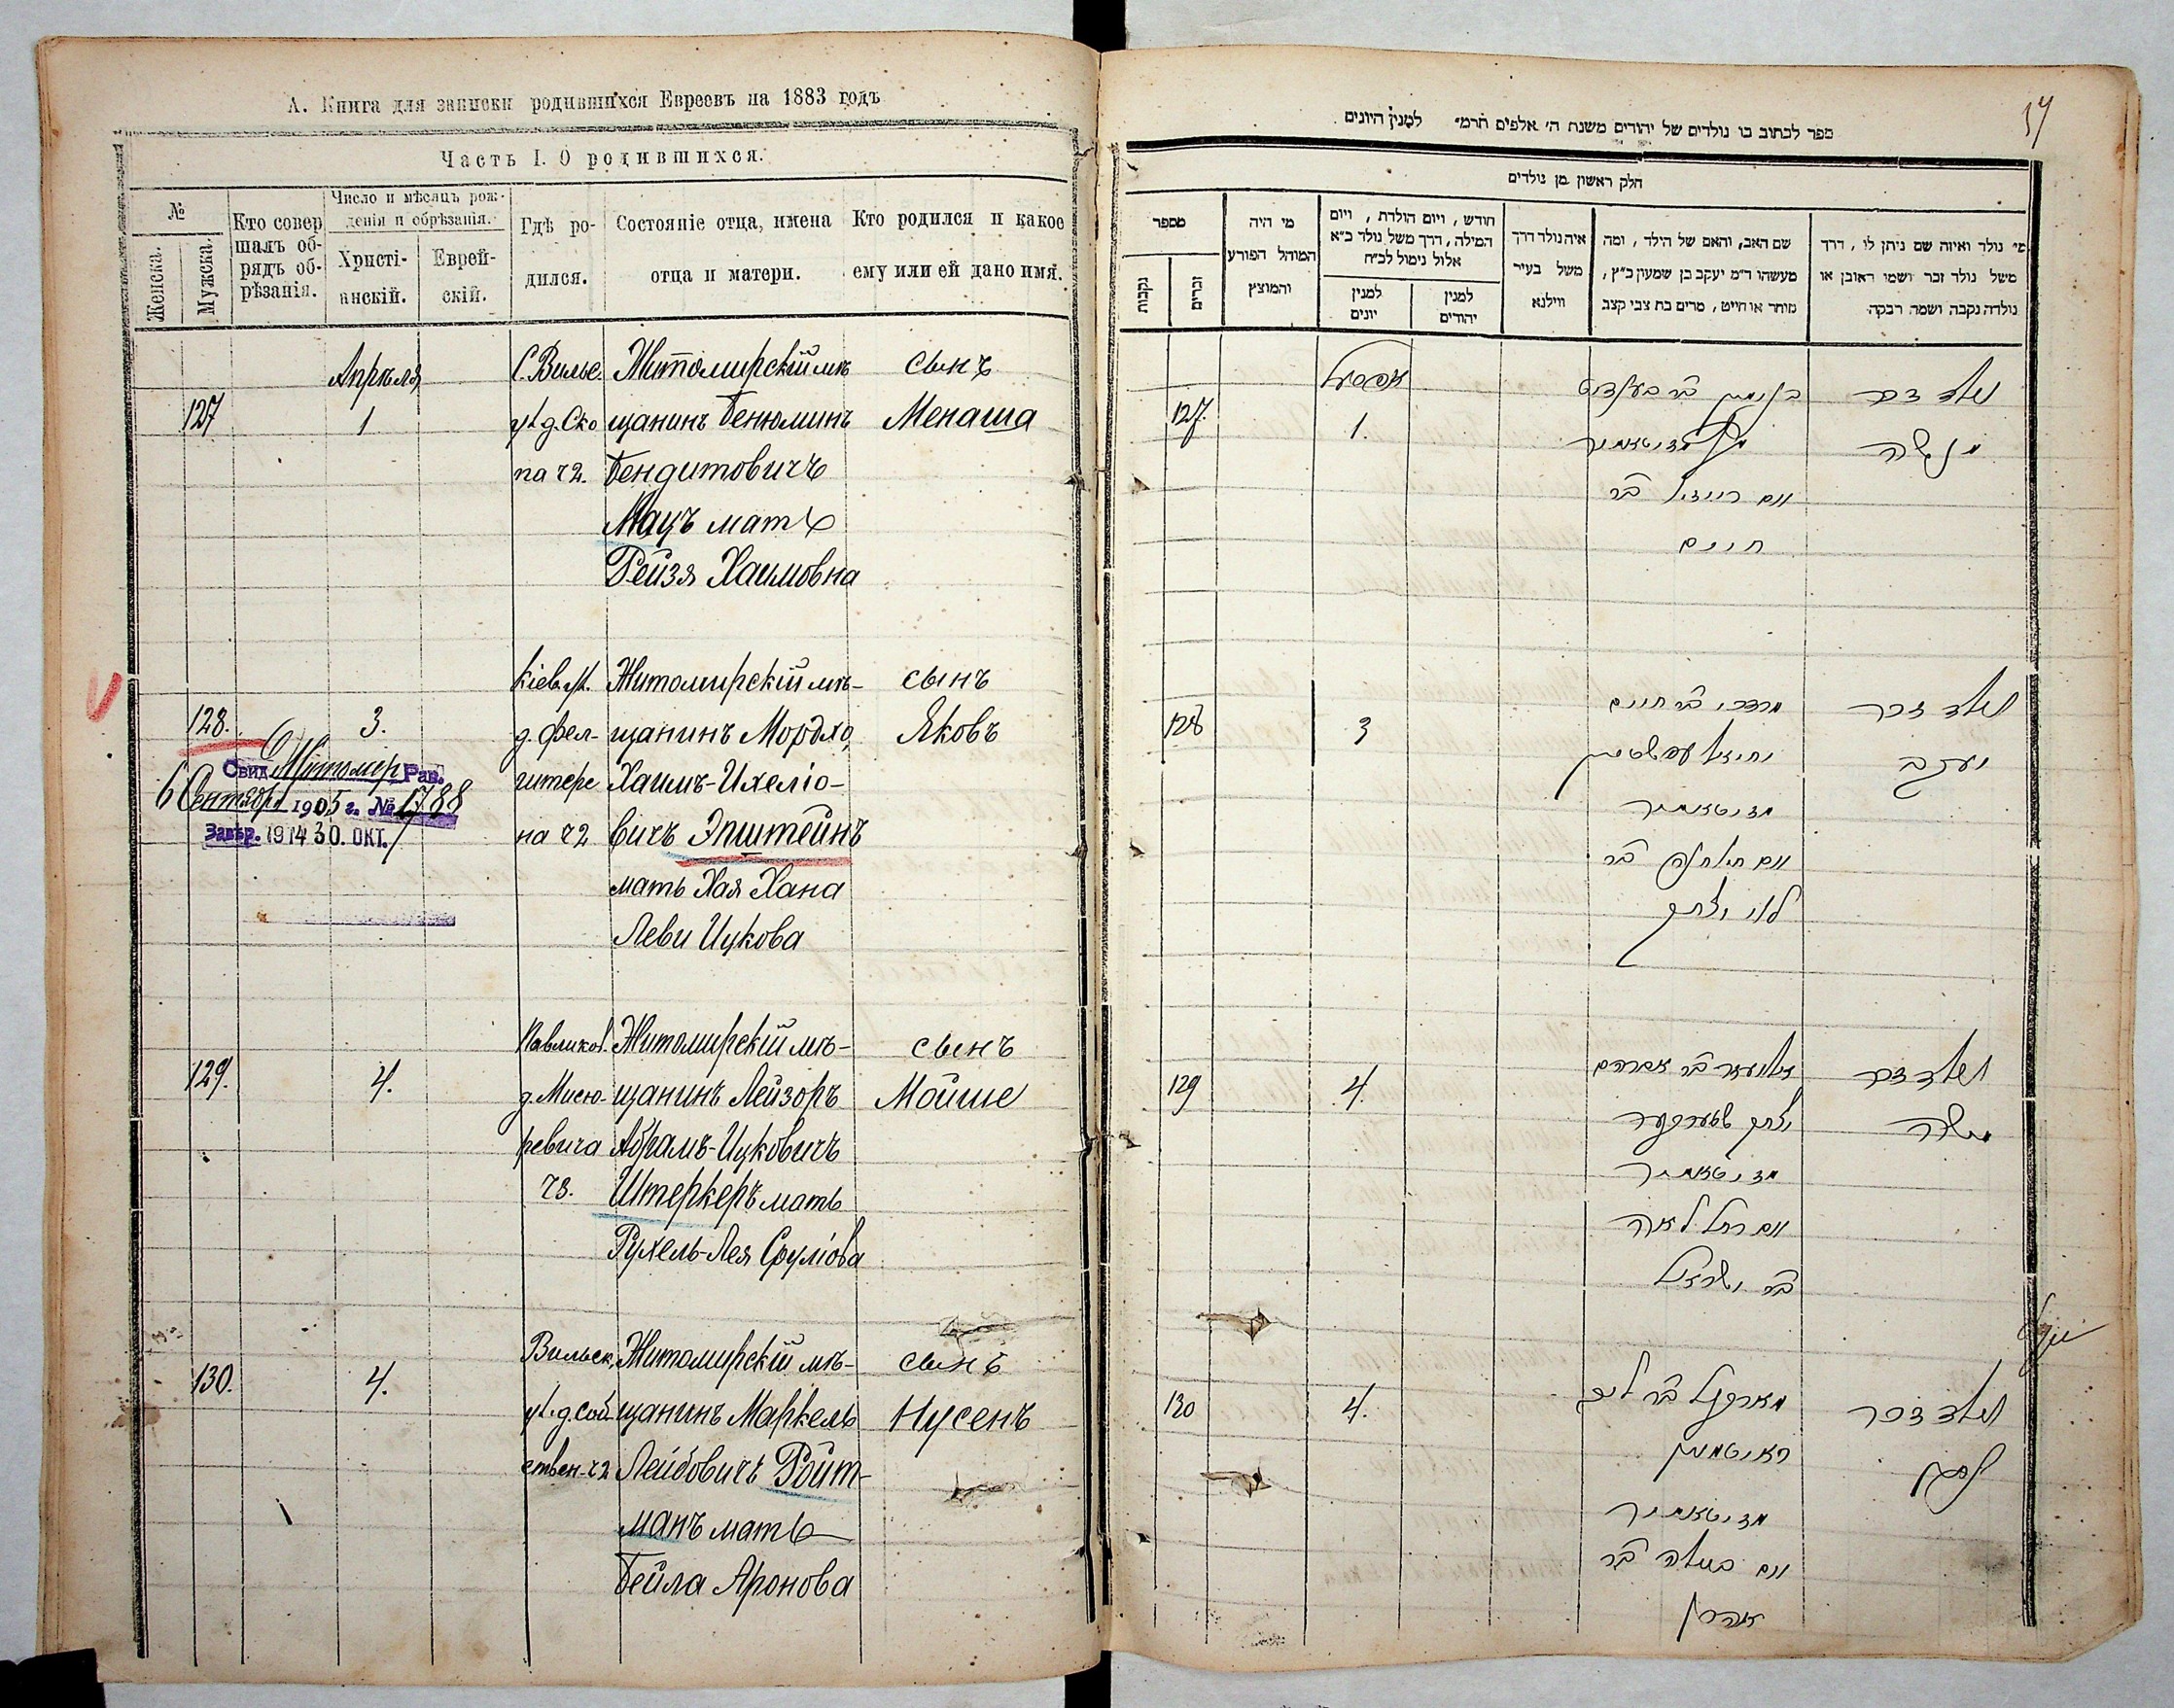 А. Книга для записки родившихся Евреевъ на 1883 годъ
Часть I. О родившихся.
№
Женска.
Мужска.
Кто совер
шалъ об-
рядъ об-
рѣзанія.
Число и мѣсяцъ рож-
денія и обрѣзанія.
Христі-
анскій.
Еврей-
скій.
Гдѣ ро-
дился.
Состояніе отца, имена
отца и матери.
Кто родился и какое
ему или ей дано имя.
Апрѣля
127
1
С. Вильс.
ул. д. Ско
па ч2.
Житомирскій мѣ
щанинъ Бенюминъ
Бендитовичъ
Мацъ мать
Рейзя Хаимовна
сынъ
Менаша
128.
3.
Кіев. ул.
д. Фел-
штере
на ч2
Житомирскій мѣ-
щанинъ Мордко,
Хаимъ-Ихеліо-
вичъ Эпштейнъ
мать Хая Хана
Леви Ицкова
сынъ
Яковъ
Свид. Житомир. Рав.
6 Сентября 1905 г. № 1788
Завѣр. 1914 30. ОКТ.
129.
4.
Павликов.
д. Мисю-
ревича
ч3.
Житомирскій мѣ-
щанинъ Лейзоръ
Абрамъ-Ицковичъ
Штеркеръ мать
Рухель-Лея Сруліова
сынъ
Мойше
130.
4.
Вильск.
ул. д. Соб
ствен. ч2
Житомирскій мѣ-
щанинъ Маркель
Лейбовичъ Ройт-
манъ мать
Бейла Аронова
сынъ
Нусенъ
ספר לכתוב בו נולדים של יהודים משנת ה' אלפים תרמ" למנין היונים
חלק ראשון מן נולדים
מספר
נקבות
זכרים
מי היה
המוהל הפורע
והמוצץ
חודש, ויום הולדת, ויום
המילה, דרך משל נולד כ"א
אלול נימול לכ"ח
למנין
יונים
למנין
יהודים
איה נולד דרך
משל בעיר
ווילנא
שם האב, והאם של הילד, ומה
מעשהו ד"מ יעקב בן שמעון כ"ץ,
סוחר או חייט, מרים בת צבי קצב
מי נולד ואיזה שם ניתן לו, דרך
משל נולד זכר ושמו ראובן או
נולדה נקבה ושמה רבקה
127.
1.
מזיטאמיר
ואם רייזיל בר
חיים
נולד זכר
מנשה
128
3
מרדכי בר חיים
יחיאל עפשטיין
מזיטאמיר
לוי יצחק
נולד זכר
יעקב
129
4.
אליעזר בר אברהם
יצחק שטערקער
מזיטאמיר
ואם רחל לאה
בר ישראל
נולד זכר
משה
130
4.
מארקיל בר ליב
ראיטמאן
מזיטאמיר
ואם ביילה בר
אהרן
נולד זכר
נתן